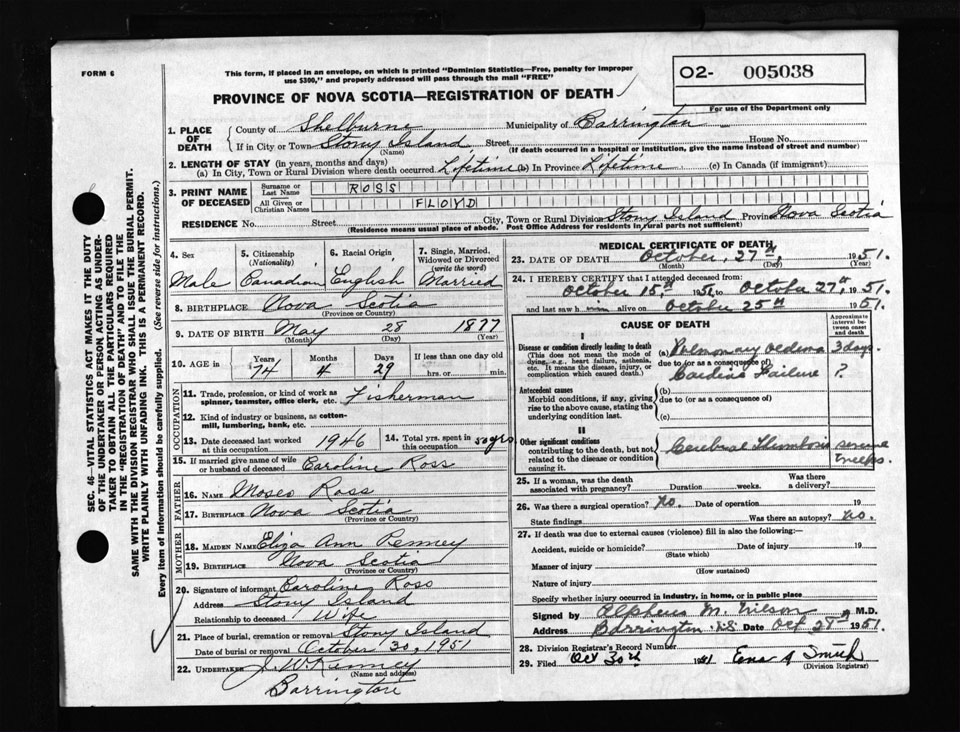 FORM 6
This form, if placed in an envelope, on which is printed "Dominion Statistics—Free, penalty for improper
use $300," and properly addressed will pass through the mail "FREE"
O2- 005038
PROVINCE OF NOVA SCOTIA—REGISTRATION OF DEATH
For use of the Department only
1. PLACE OF DEATH County of Shelburne Municipality of Barrington
If in City or Town Stony Island Street House No.
(Name) (If death occurred in a hospital or institution, give the name instead of street and number)
2. LENGTH OF STAY (in years, months and days)
(a) In City, Town or Rural Division where death occurred Lifetime (b) In Province Lifetime (c) In Canada (if immigrant)
3. PRINT NAME OF DECEASED Surname or Last Name ROSS
All Given or Christian Names FLOYD
RESIDENCE No. Street City, Town or Rural Division Stony Island Province Nova Scotia
(Residence means usual place of abode. Post Office Address for residents in rural parts not sufficient)
4. Sex Male
5. Citizenship (Nationality) Canadian
6. Racial Origin English
7. Single, Married, Widowed or Divorced (write the word) Married
8. BIRTHPLACE Nova Scotia
(Province or Country)
9. DATE OF BIRTH May 28 1877
(Month) (Day) (Year)
10. AGE in Years 74 Months 4 Days 29 If less than one day old hrs. or min.
OCCUPATION
11. Trade, profession, or kind of work as spinner, teamster, office clerk, etc. Fisherman
12. Kind of industry or business, as cotton-mill, lumbering, bank, etc.
13. Date deceased last worked at this occupation 1946
14. Total yrs. spent in this occupation 50 yrs
15. If married give name of wife or husband of deceased Caroline Ross
FATHER
16. Name Moses Ross
17. BIRTHPLACE Nova Scotia
(Province or Country)
MOTHER
18. MAIDEN NAME Eliza Ann Penney
19. BIRTHPLACE Nova Scotia
(Province or Country)
20. Signature of informant Caroline Ross
Address Stony Island
Relationship to deceased Wife
21. Place of burial, cremation or removal Stony Island
Date of burial or removal October 30, 1951
22. UNDERTAKER J. W. Kenney
(Name and address)
Barrington
MEDICAL CERTIFICATE OF DEATH
23. DATE OF DEATH October, 27th, 1951.
(Month) (Day) (Year)
24. I HEREBY CERTIFY that I attended deceased from:
October 15th 1951 to October 27th, 1951.
and last saw h im alive on October 25th 1951.
CAUSE OF DEATH
Approximate interval between onset and death
I
Disease or condition directly leading to death
(This does not mean the mode of dying, e.g., heart failure, asthenia, etc. It means the disease, injury, or complication which caused death.)
(a) Pulmonary Oedema 3 days.
due to (or as a consequence of)
Cardiac Failure ?
Antecedent causes
Morbid conditions, if any, giving rise to the above cause, stating the underlying condition last.
(b)
due to (or as a consequence of)
(c)
II
Other significant conditions
contributing to the death, but not related to the disease or condition causing it.
Cerebral Thrombosis weeks.
25. If a woman, was the death associated with pregnancy? Duration weeks. Was there a delivery?
26. Was there a surgical operation? No. Date of operation 19
State findings Was there an autopsy? No.
27. If death was due to external causes (violence) fill in also the following:
Accident, suicide or homicide? Date of injury 19
(State which)
Manner of injury
(How sustained)
Nature of injury
Specify whether injury occurred in industry, in home, or in public place
Signed by Alpheus M. Wilson M.D.
Address Barrington N.S. Date Oct 28th 1951.
28. Division Registrar's Record Number
29. Filed Oct 30th 1951 Smith
(Division Registrar)
SEC. 46—VITAL STATISTICS ACT MAKES IT THE DUTY
OF THE UNDERTAKER OR PERSON ACTING AS UNDER-
TAKER TO OBTAIN ALL THE PARTICULARS REQUIRED
IN THE "REGISTRATION OF DEATH" AND TO FILE THE
SAME WITH THE DIVISION REGISTRAR WHO SHALL ISSUE THE BURIAL PERMIT.
WRITE PLAINLY WITH UNFADING INK. THIS IS A PERMANENT RECORD.
Every item of information should be carefully supplied. (See reverse side for instructions.)